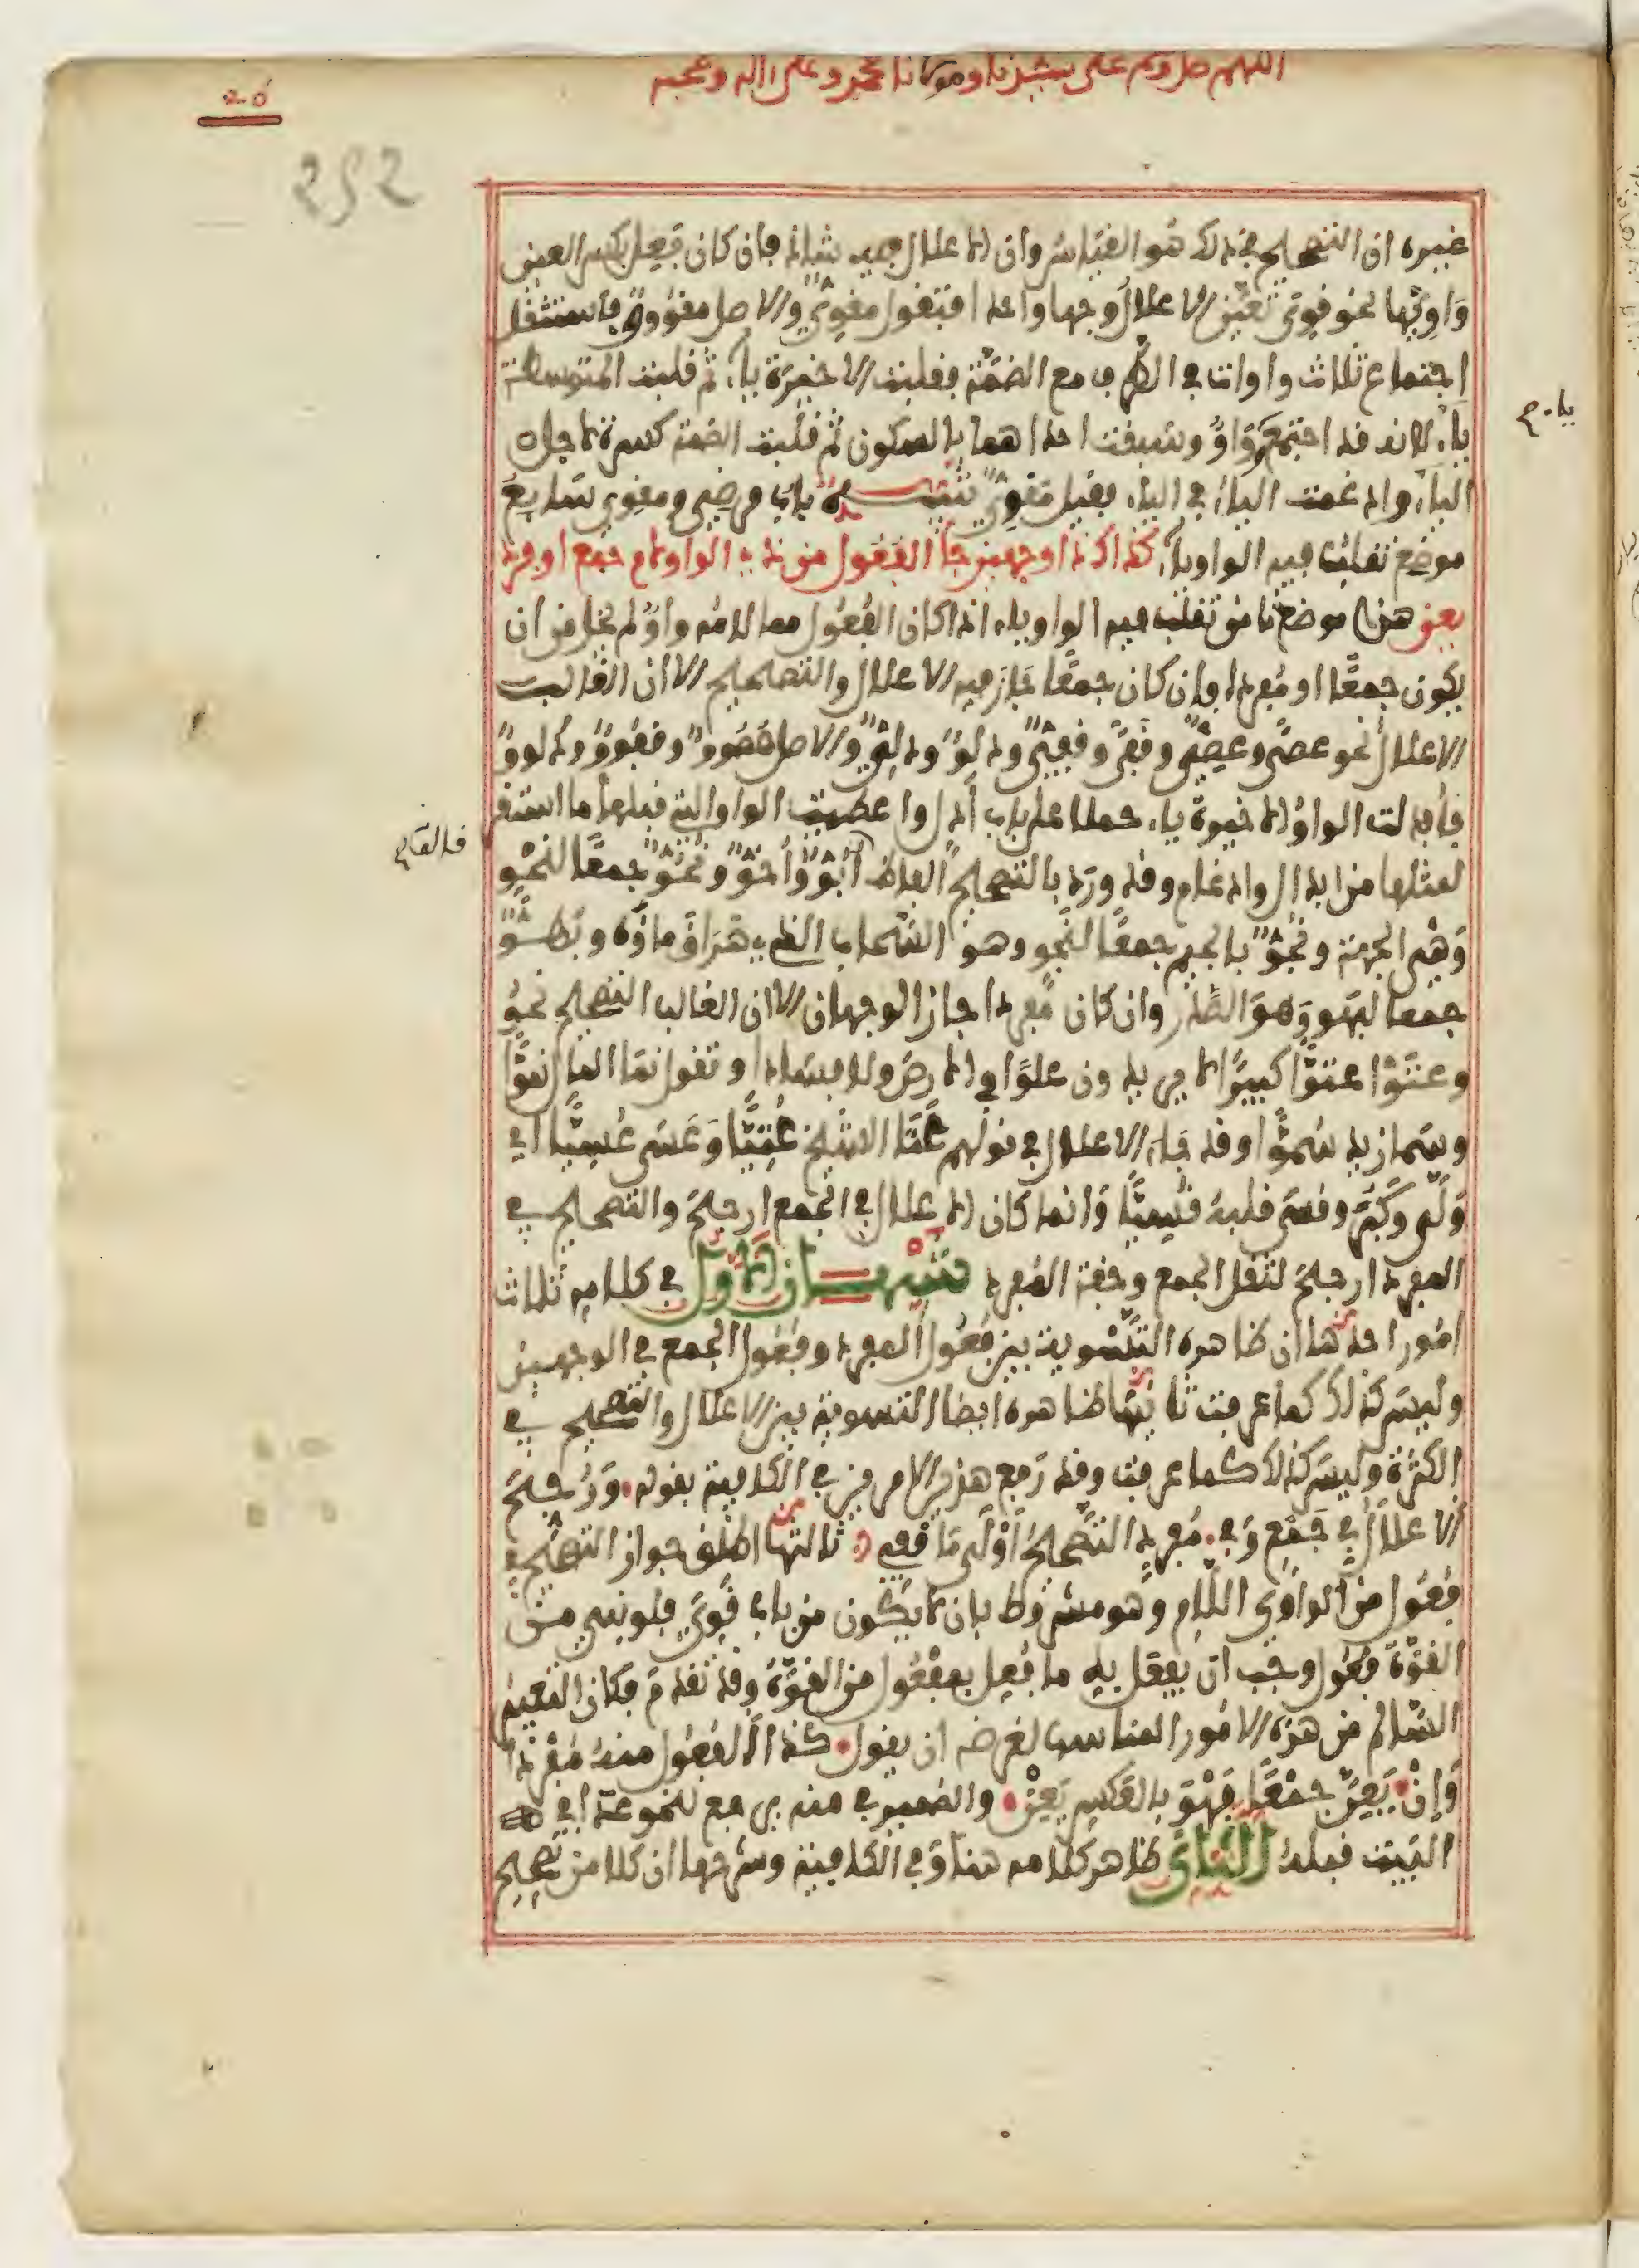 اللهم صل وسلم على سيدنا ومولانا محمد وعلى اله وصحبه
252
غيره ان التصحيح في ذلك هو القياس وان الاعلال فيه شاذ فان كان فعل بكسر العين
واويّها نحو قوى تعين الاعلال وجها واحدا فتقول مقوىّ والاصل مقووو فاستثقل
اجتماع ثلاث واوات في الطرف مع الضمة فقلبت الاخيرة ياء ثم قلبت المتوسطة
ياء لانه قد اجتمع ياء وواو وسبقت احداهما بالسكون ثم قلبت الضمة كسرة لاجل
الياء وادغمت الياء في الياء فقيل مقويّ تنبيه باب مرضي ومقوي سابع
موضع تقلب فيه الواو ياء كذاك ذا وجهين جا الفعول من ذي الواو لام جمع او فرد
يعن هذا موضع ثامن تقلب فيه الواو ياء اذا كان الفعول مما لامه واو لم يخل من ان
يكون جمعا او مفردا فان كان جمعا جاز فيه الاعلال والتصحيح الا ان الغالب
الاعلال نحو عصى وعصيّ وقفى وقفيّ ودلو ودليّ والاصل عصوو وقفوو ودلوو
فابدلت الواو الاخيرة ياء حملا على باب ادل واعطيت الواو التي قبلها ما استقر
لمثلها من ابدال وادغام وقد ورد بالتصحيح الفاظ ابوّ واخوّ ونحوّ جمعا لنحو
وهي الجهة ونجوّ بالجيم جمعا لنجو وهو السحاب الذي هراق ماؤه وبهوّ
جمعا لبهو وهو الصدر وان كان مفردا جاز الوجهان الا ان الغالب التصحيح نحو
وعتوا عتوّا كبيرا لا يريدون علوا في الارض ولا فسادا وتقول نما المال نموّا
وسما زيد سموّا وقد جاء الاعلال في قولهم عتا الشيخ عتيّا وعسى عسيّا اي
ولّى وكبر وقسى قلبه قسيّا وانما كان الاعلال في الجمع ارجح والتصحيح في
المفرد ارجح لثقل الجمع وخفة المفرد تنبيهان الاول في كلامه ثلاث
امور احدها ان ظاهره التسوية بين فعول المفرد وفعول الجمع في الوجهين
وليس كذلك كما عرفت ثانيها ظاهره ايضا التسوية بين الاعلال والتصحيح في
الكثرة وليس كذلك كما عرفت وقد رفع هذين الامرين في الكافية بقوله ورجح
الاعلال في جمع وفي مفرد التصحيح اولى ما قفي ثالثها اطلق جواز التصحيح في
فعول من الواوي اللام وهو مشروط بان لا يكون من باب قوي فلو بني من
القوة فعول وجب ان يفعل به ما فعل بمفعول من القوة وقد تقدم فكان التعبير
السالم من هذه الامور المناسب لغرضه ان يقول كذا الفعول منه مفردا
وان يعن جمعا فهو بالعكس يعن والضمير في منه يرجع لنحو عدا في
البيت قبله الثاني ظاهر كلامه هنا وفي الكافية وشرحها ان كلا من تصحيح